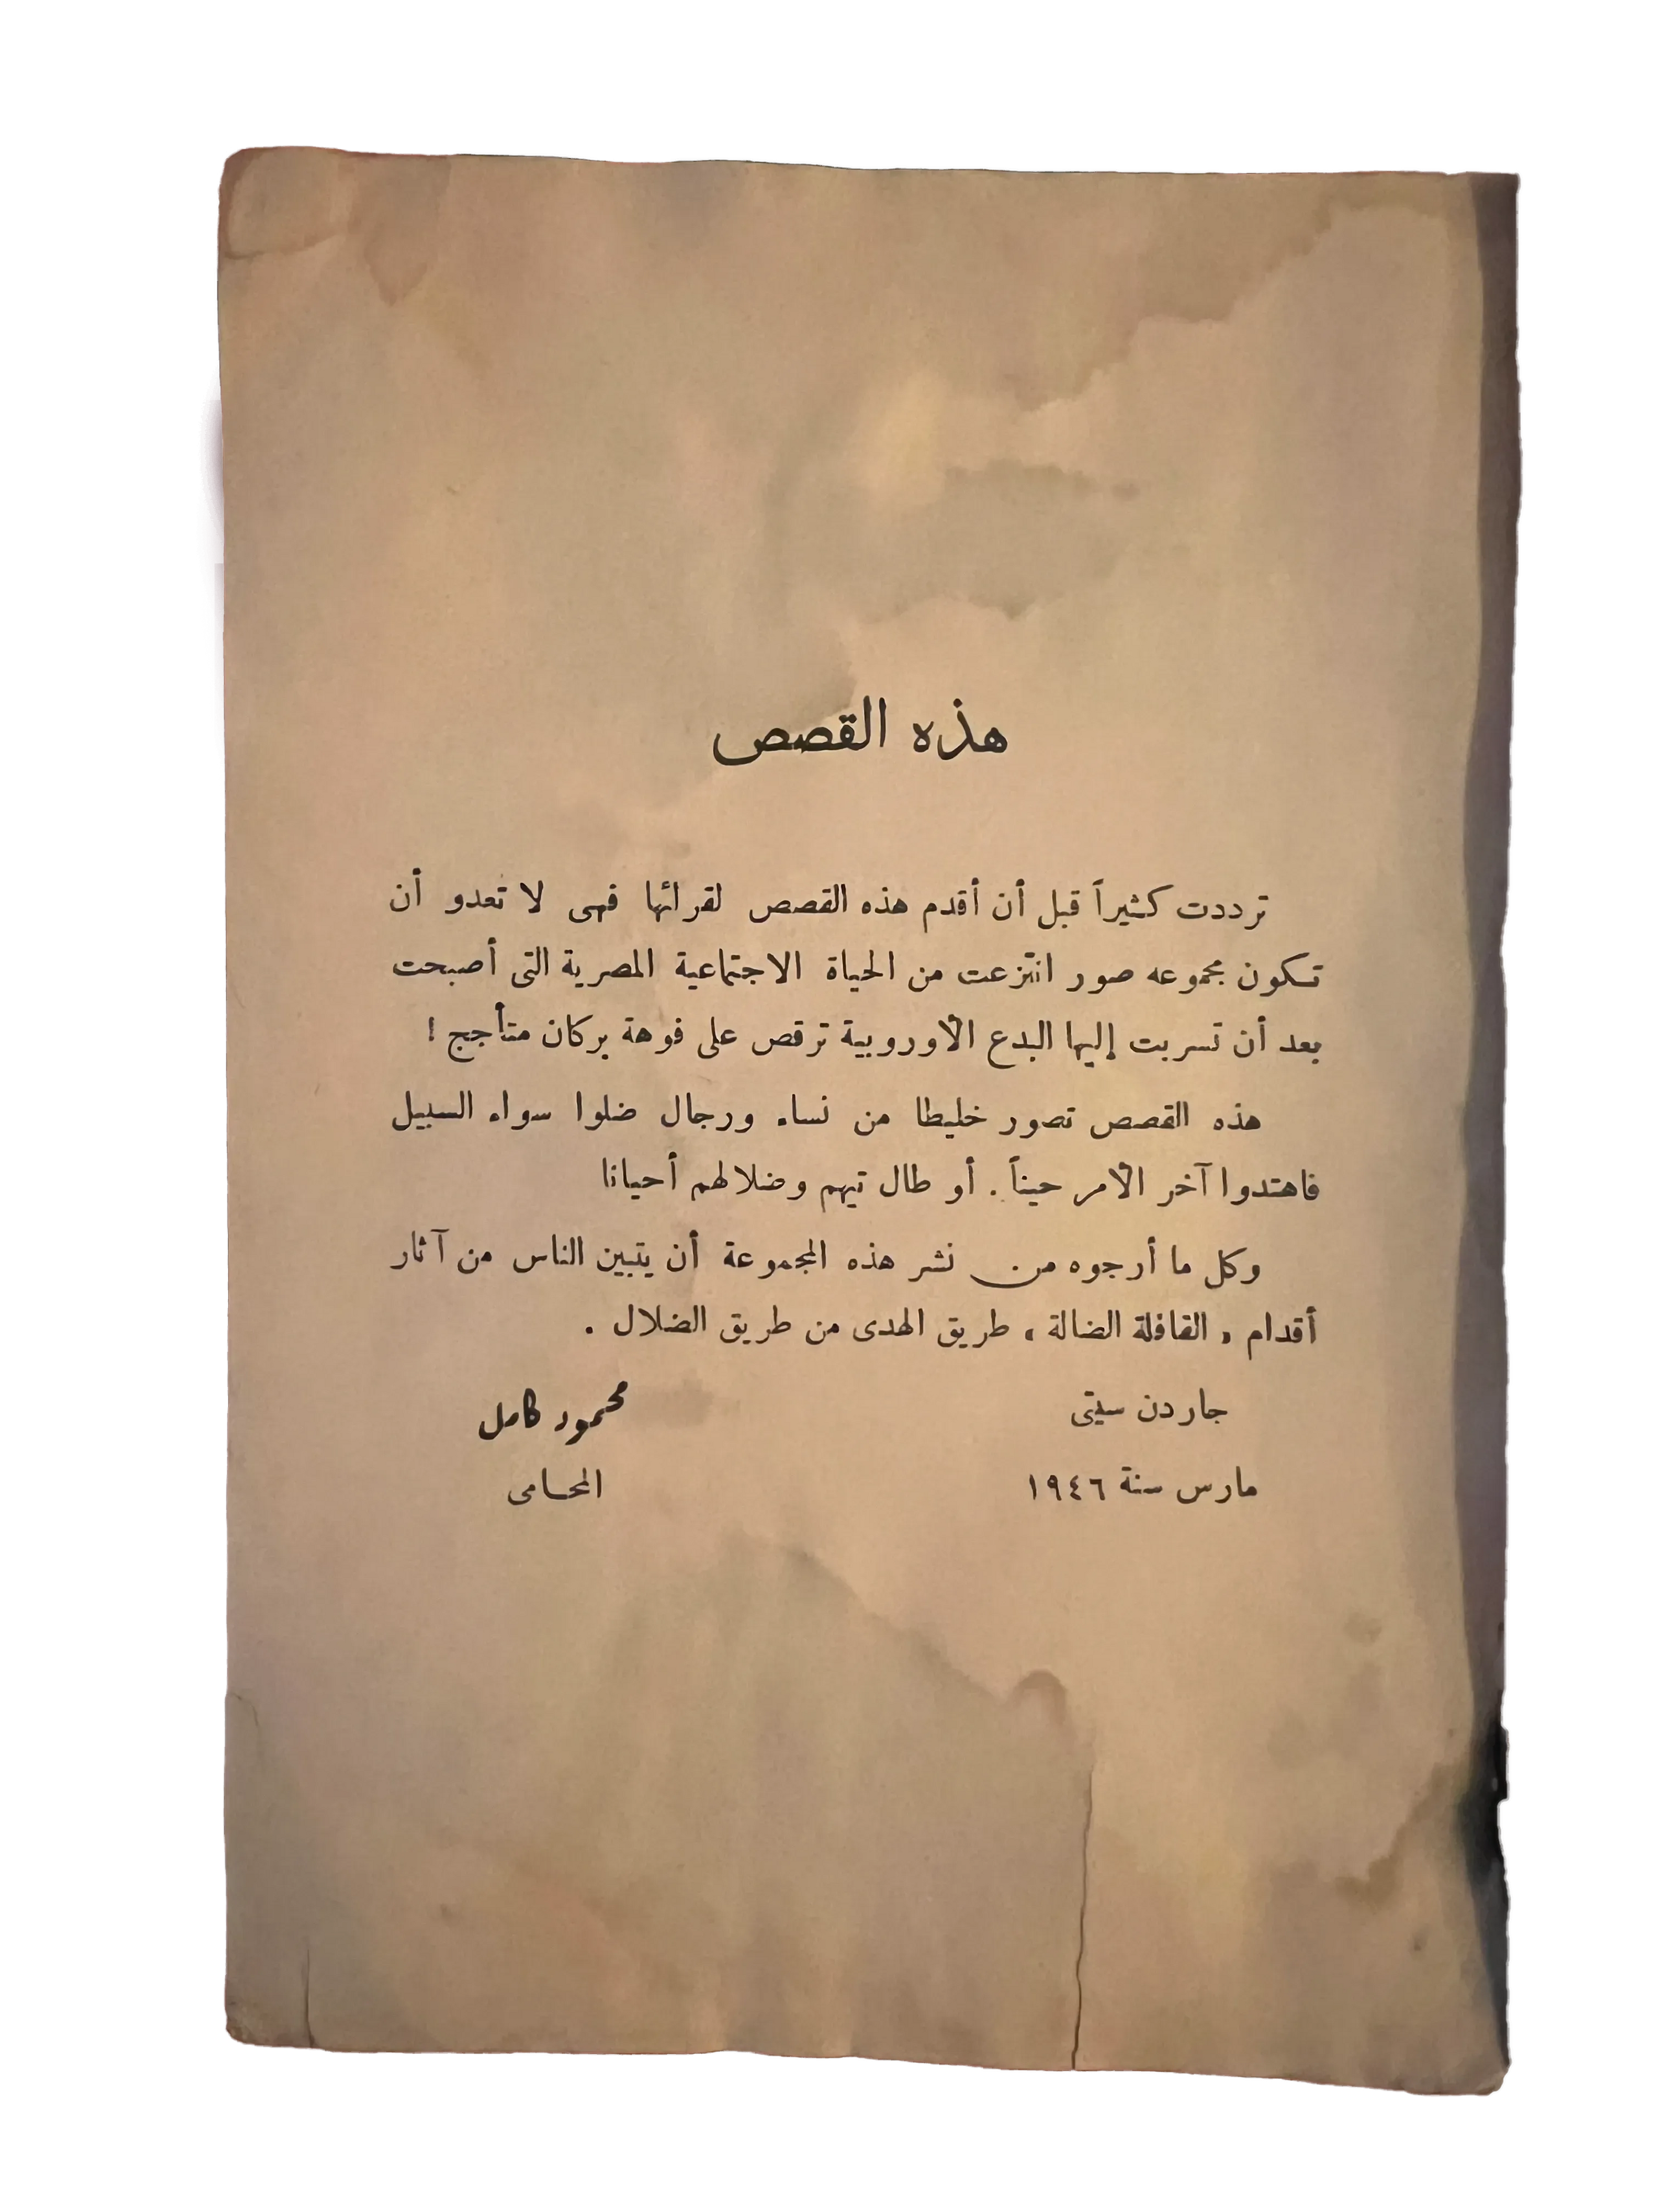 هذه القصص
ترددت كثيراً قبل أن أقدم هذه القصص لقرائها فهى لا تعدو أن
تكون مجموعه صور انتزعت من الحياة الاجتماعية المصرية التى أصبحت
بعد أن تسربت إليها البدع الأوروبية ترقص على فوهة بركان متأجج !
هذه القصص تصور خليطا من نساء ورجال ضلوا سواء السبيل
فاهتدوا آخر الأمر حيناً . أو طال تيههم وضلالهم أحيانا
وكل ما أرجوه من نشر هذه المجموعة أن يتبين الناس من آثار
أقدام « القافلة الضالة » طريق الهدى من طريق الضلال .
جاردن سيتى
محمود كامل
مارس سنة ١٩٤٦
المحامى